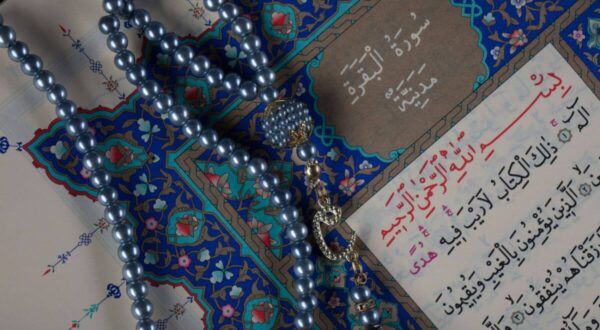 سُورَةُ الْبَقَرَةِ
مَدَنِيَّةٌ
بِسْمِ اللهِ الرَّحْمٰنِ الرَّحِيمِ
الٓمٓ ذٰلِكَ الْكِتَابُ لَارَيْبَ فِيهِ هُدًى
اَلَّذِينَ يُؤْمِنُونَ بِالْغَيْبِ وَيُقِيمُونَ
يُنْفِقُونَ